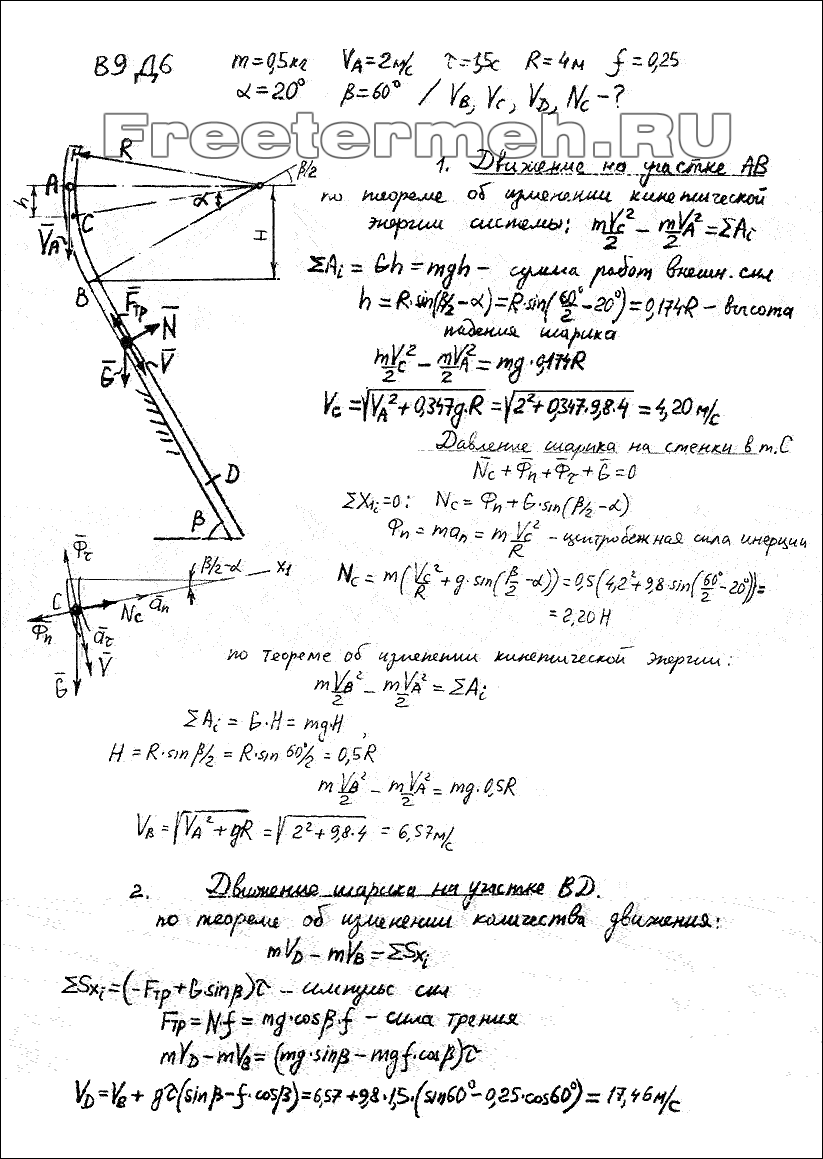 В9 Д6 m=0,5кг V_A=2м/с τ=1,5с R=4м f=0,25
α=20° β=60° / V_B, V_C, V_D, N_C-?
Freetermeh.RU
R
β/2
A
h
C
α
H
V̄_A
B
F̄тр
N̄
Ḡ
V̄
D
β
1. Движение на участке АВ
по теореме об изменении кинетической
энергии системы: mV_C²/2 - mV_A²/2 = ΣA_i
ΣA_i = Gh = mgh - сумма работ внешн. сил
h = R·sin(β/2-α) = R·sin(60°/2-20°) = 0,174R - высота
падения шарика
mV_C²/2 - mV_A²/2 = mg·0,174R
V_C = √(V_A²+0,347g·R) = √(2²+0,347·9,8·4) = 4,20 м/с
Давление шарика на стенки в т.С
N̄_C + Φ̄_n + Φ̄_τ + Ḡ = 0
ΣX_1i=0: N_C = Φ_n + G·sin(β/2-α)
Φ_n = ma_n = m V_C²/R - центробежная сила инерции
N_C = m(V_C²/R + g·sin(β/2-α)) = 0,5(4,2²+9,8·sin(60°/2-20°)) =
= 2,20 Н
Φ̄_τ
β/2-α
X1
C
N_C
ā_n
Φ̄_n
ā_τ
V̄
Ḡ
по теореме об изменении кинетической энергии:
mV_B²/2 - mV_A²/2 = ΣA_i
ΣA_i = G·H = mg·H,
H = R·sin β/2 = R·sin 60°/2 = 0,5R
mV_B²/2 - mV_A²/2 = mg·0,5R
V_B = √(V_A²+gR) = √(2²+9,8·4) = 6,57м/с
2. Движение шарика на участке BD.
по теореме об изменении количества движения:
mV_D - mV_B = ΣSx_i
ΣSx_i = (-Fтр + G sinβ)τ - импульс сил
Fтр = N·f = mg·cosβ·f - сила трения
mV_D - mV_B = (mg·sinβ - mgf·cosβ)τ
V_D = V_B + gτ(sinβ - f·cosβ) = 6,57 + 9,8·1,5·(sin60° - 0,25·cos60°) = 17,46 м/с